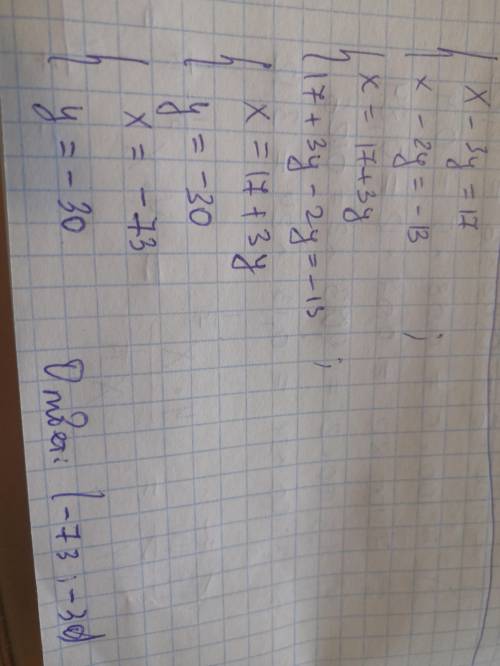 { x - 3y = 17
x - 2y = -13 ;
{ x = 17 + 3y
17 + 3y - 2y = -13 ;
{ x = 17 + 3y
y = -30
{ x = -73
y = -30
Ответ: (-73; -30)